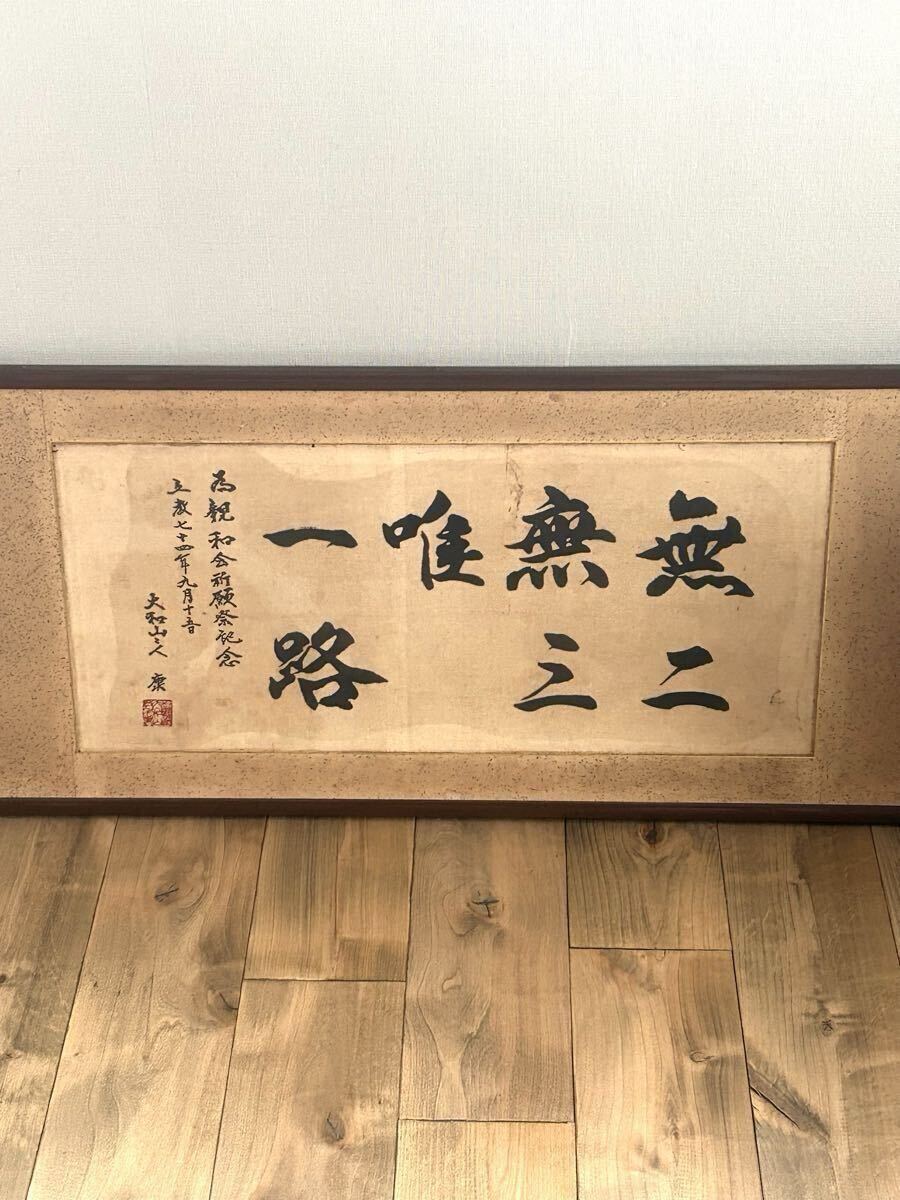 無二
無三
唯
一路
為親和会祈願祭記念
立教七十四年九月十五日
大和山主人 康